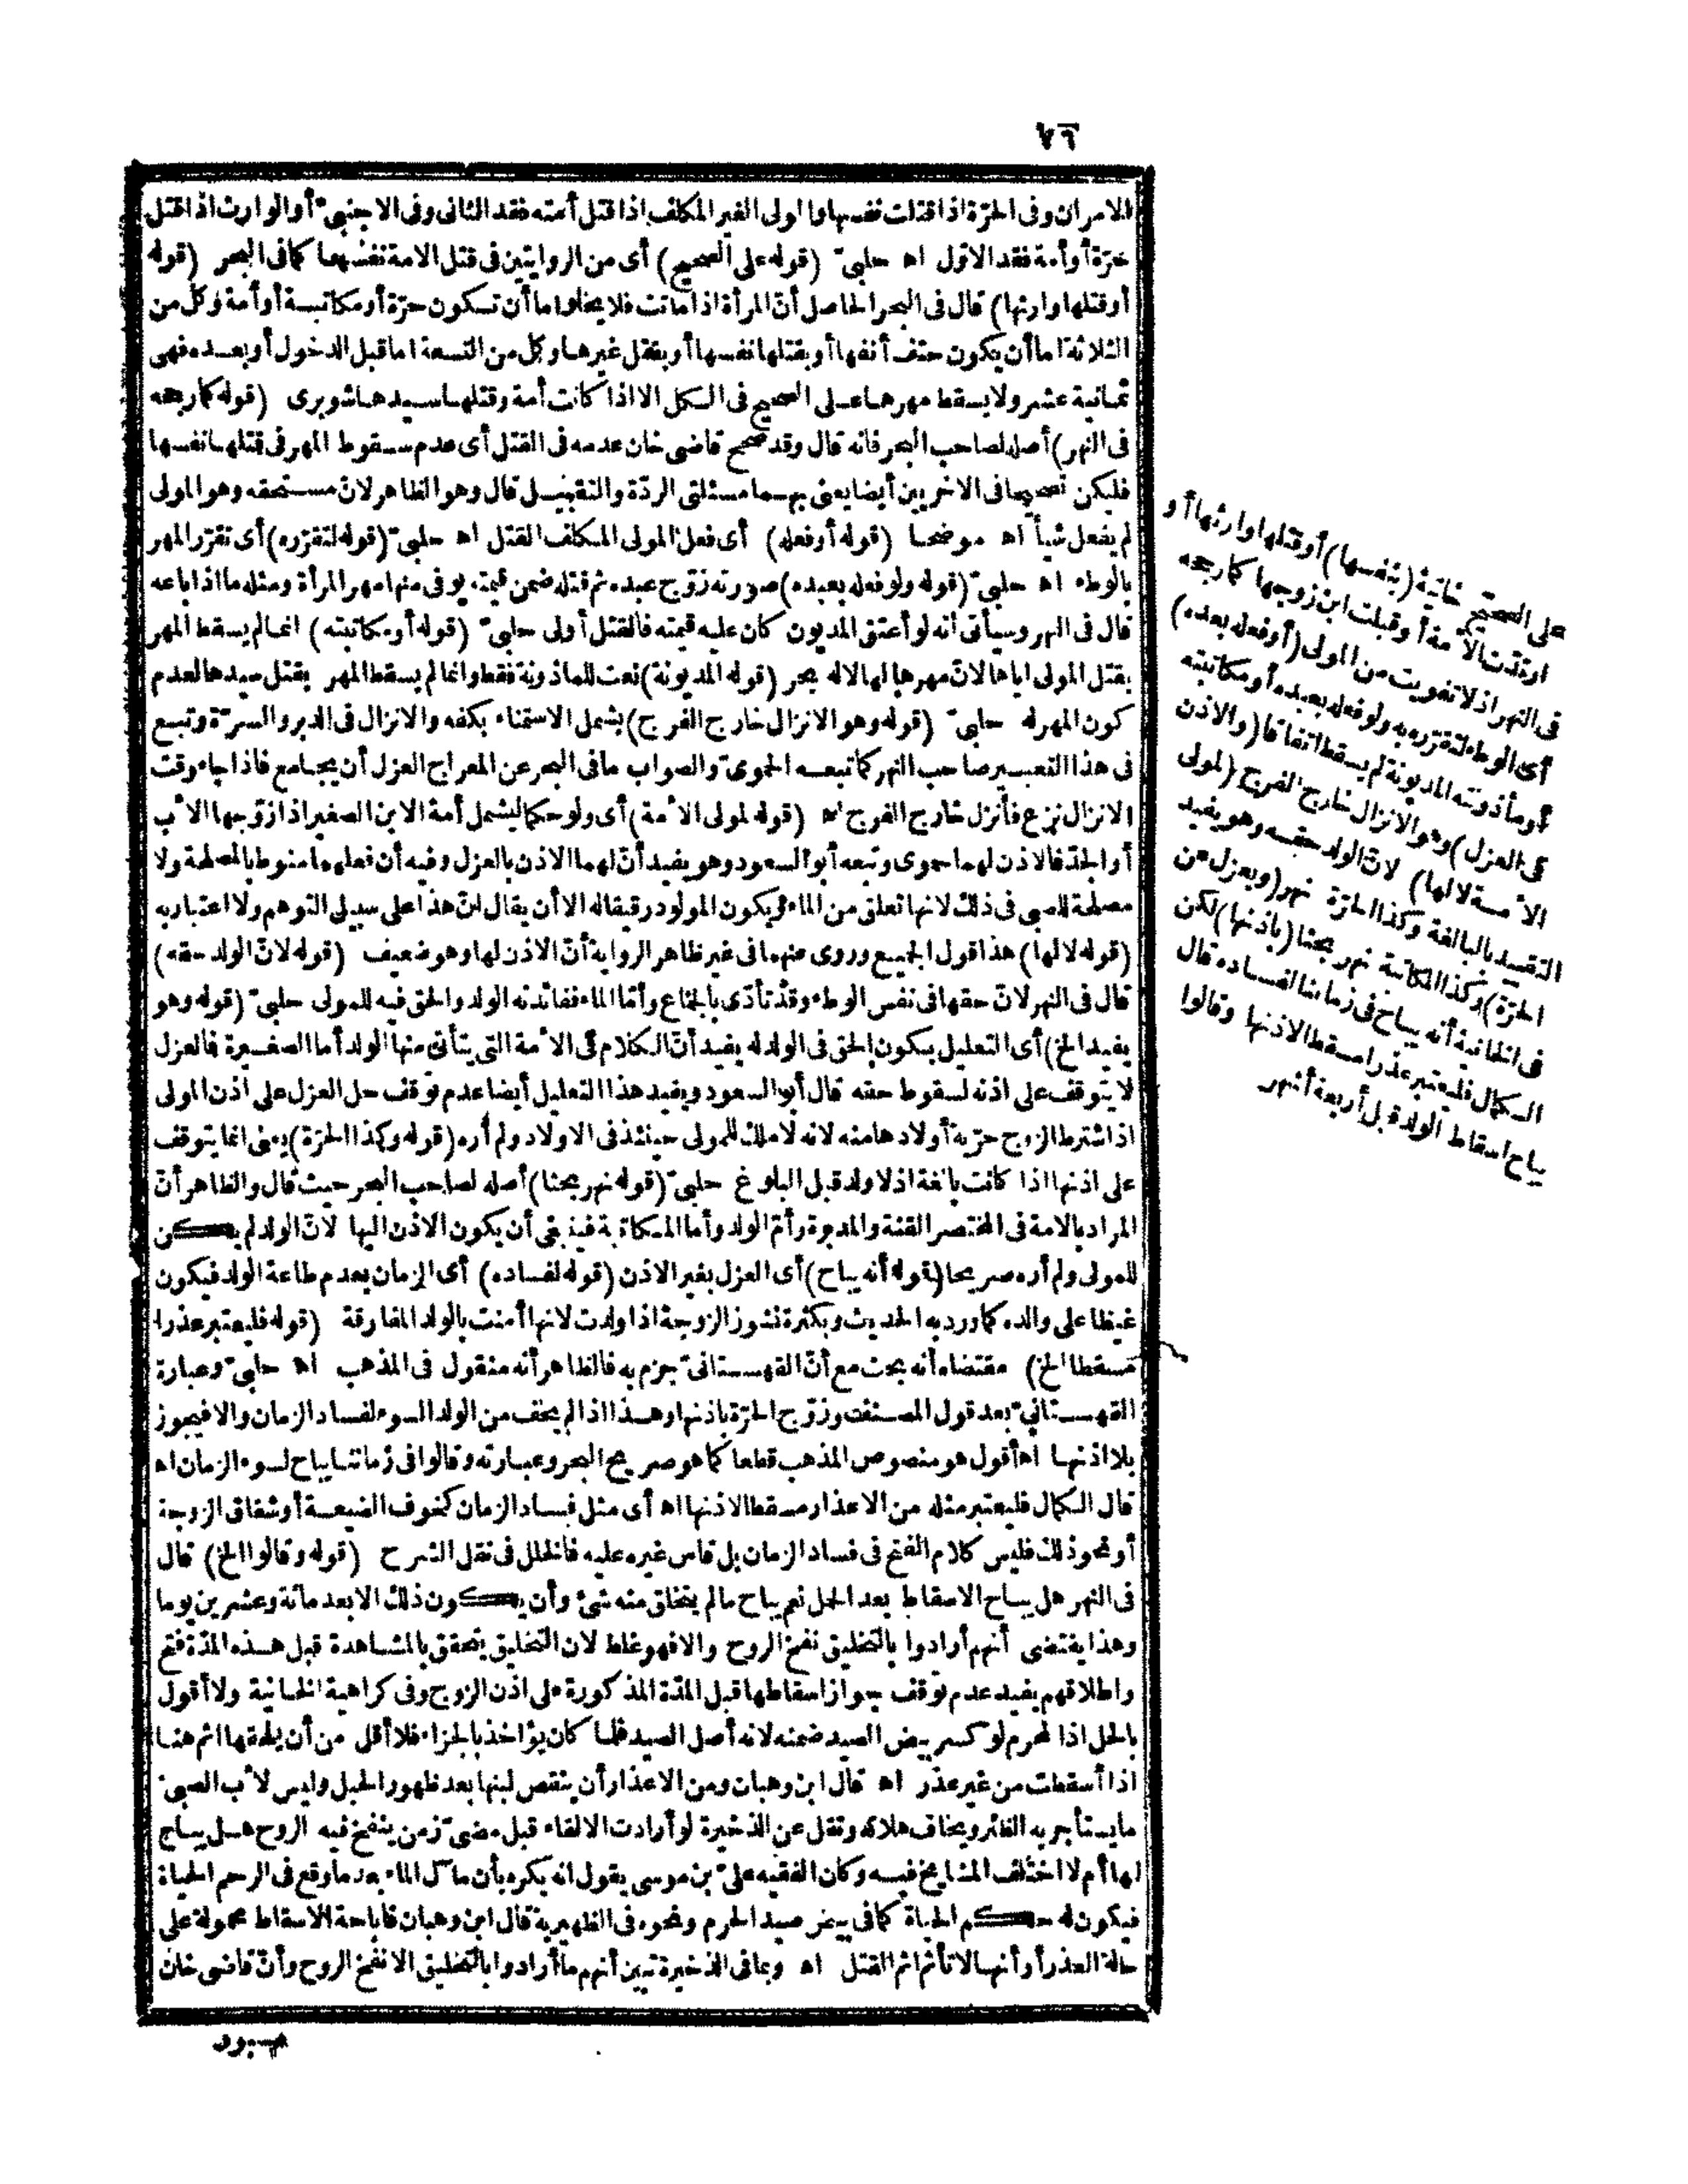 ٧٦
الامران وفى الحرّة اذا قتلت نفسها والمولى الغير المكلف اذا قتل أمته فقد الثانى وفى الاجنبىّ أو الوارث اذا قتل
حرّة أو أمة فقد الاوّل اه حلبىّ (قوله على الصحيح) أى من الروايتين فى قتل الامة نفسها كما فى البحر (قوله
أو قتلها وارثها) قال فى البحر الحاصل أنّ المرأة اذا ماتت فلا يخلو اما أن تكون حرّة أو مكاتبة أو أمة وكل من
الثلاثة اما أن يكون حتف أنفها أو بقتلها نفسها أو بقتل غيرها وكل من التسعة اما قبل الدخول أو بعده فهى
ثمانية عشر ولا يسقط مهرها على الصحيح فى الكل الا اذا كانت أمة وقتلها سيدها شوبرى (قوله كما رجحه
فى النهر) أصله لصاحب البحر فانه قال وقد صحح قاضى خان عدمه فى القتل أى عدم سقوط المهر فى قتلها نفسها
فليكن تصحيحا فى الاخريين أيضا يعنى بهما مسئلتى الردّة والتقبيل قال وهو الظاهر لانّ مستحقه وهو المولى
لم يفعل شيأ اه موضحا (قوله أو فعله) أى فعل المولى المكلف القتل اه حلبىّ (قوله لتقرّره) أى تقرّر المهر
بالوطء اه حلبىّ (قوله ولو فعله بعبده) صورته زوّج عبده ثم قتله ضمن قيمته يوفى منها مهر المرأة ومثله ما اذا باعه
قال فى النهر وسيأتى أنه لو أعتق المديون كان عليه قيمته فالقتل أولى حلبىّ (قوله أو مكاتبته) انما لم يسقط المهر
بقتل المولى اياها لانّ مهرها لها لا له بحر (قوله المديونة) نعت للمأذونة فقط وانما لم يسقط المهر بقتل سيدها لعدم
كون المهر له حلبىّ (قوله وهو الانزال خارج الفرج) يشمل الاستمناء بكفه والانزال فى الدبر والسرّة وتبع
فى هذا التعبير صاحب النهر كما تبعه الحموىّ والصواب ما فى البحر عن المعراج العزل أن يجامع فاذا جاء وقت
الانزال نزع فأنزل خارج الفرج اه (قوله لمولى الأمة) أى ولو حكما ليشمل أمة الابن الصغير اذا زوّجها الأب
أو الجدّ فالاذن لهما حموى وتبعه أبو السعود وهو يفيد أنّ لهما الاذن بالعزل وفيه أن فعلهما منوط بالمصلحة ولا
مصلحة للصبى فى ذلك لانها تعلق من الماء ويكون المولود رقيقا له الا أن يقال انّ هذا على سبيل التوهم ولا اعتبار به
(قوله لا لها) هذا قول الجميع وروى عنهما فى غير ظاهر الرواية أنّ الاذن لها وهو ضعيف (قوله لانّ الولد حقه)
قال فى النهر لانّ حقها فى نفس الوطء وقد تأدّى بالجماع وأمّا الماء ففائدته الولد والحق فيه للمولى حلبىّ (قوله وهو
يفيد الخ) أى التعليل بكون الحق فى الولد له يفيد أنّ الكلام فى الأمة التى يتأتى منها الولد أما الصغيرة فالعزل
لا يتوقف على اذنه لسقوط حقه قال أبو السعود ويفيد هذا التعليل أيضا عدم توقف حل العزل على اذن المولى
اذا شترط الزوج حرّية أولادها منه لانه لا ملك للمولى حينئذ فى الاولاد ولم أره (قوله وكذا الحرّة) يعنى انما يتوقف
على اذنها اذا كانت بالغة اذ لا ولد قبل البلوغ حلبىّ (قوله نهر بحثا) أصله لصاحب البحر حيث قال والظاهر أنّ
المراد بالامة فى المختصر القنة والمدبرة وأمّ الولد وأما المكاتبة فينبغى أن يكون الاذن اليها لانّ الولد لم يكن
للمولى ولم أره صريحا (قوله أنه يباح) أى العزل بغير الاذن (قوله لفساده) أى الزمان بعدم طاعة الولد فيكون
غيظا على والده كما ورد به الحديث وبكثرة نشوز الزوجة اذا ولدت لانها أمنت بالولد المفارقة (قوله فليعتبر عذرا
مسقطا الخ) مقتضاه أنه بحث مع أنّ القهستانىّ جزم به فالظاهر أنه منقول فى المذهب اه حلبىّ وعبارة
القهستانىّ بعد قول المصنف وزوّج الحرّة باذنها وهذا اذا لم يخف من الولد السوء لفساد الزمان والا فيجوز
بلا اذنها اه أقول هو منصوص المذهب قطعا كما هو صريح البحر وعبارته وقالوا فى زماننا يباح لسوء الزمان اه
قال الكمال فليعتبر مثله من الاعذار مسقطا لاذنها اه أى مثل فساد الزمان كخوف الضيعة أو شقاق الزوجة
أو نحو ذلك فليس كلام الفتح فى فساد الزمان بل قاس غيره عليه فالخلل فى نقل الشرح (قوله وقالوا الخ) قال
فى النهر هل يباح الاسقاط بعد الحبل نعم يباح ما لم يتخلق منه شئ وأن يكون ذلك الا بعد مائة وعشرين يوما
وهذا يقتضى أنهم أرادوا بالتخليق نفخ الروح والا فهو غلط لان التخليق يتحقق بالمشاهدة قبل هذه المدّة فتح
واطلاقهم يفيد عدم توقف جواز اسقاطها قبل المدّة المذكورة على اذن الزوج وفى كراهية الخانية ولا أقول
بالحل اذ المحرم لو كسر بيض الصيد ضمنه لانه أصل الصيد فلما كان يؤاخذ بالجزاء فلا أقل من أن يلحقها اثم هنا
اذا أسقطت من غير عذر اه قال ابن وهبان ومن الاعذار أن ينقص لبنها بعد ظهور الحبل وليس لأب الصبىّ
ما يستأجر به الظئر ويخاف هلاكه ونقل عن الذخيرة لو أرادت الالقاء قبل مضىّ زمن ينفخ فيه الروح هل يباح
لها أم لا اختلف المشايخ فيه وكان الفقيه علىّ بن موسى يقول انه يكره بأن مآل الماء بعد ما وقع فى الرحم الحياة
فيكون له حكم الحياة كما فى بيض صيد الحرم ونحوه فى الظهيرية قال ابن وهبان فاباحة الاسقاط محمولة على
حالة العذر أو أنها لا تأثم اثم القتل اه وبما فى الذخيرة تبين أنهم ما أرادوا بالتخليق الا نفخ الروح وأنّ قاضى خان
على الصحيح خانية (بنفسها) أو قتلها وارثها أو
ارتدّت الأمة أو قبلت ابن زوجها كما رجحه
فى النهر اذ لا تفويت من المولى (أو فعله بعده)
أى الوطء لتقرّره به ولو فعله بعبده أو مكاتبته
أو مأذونته المديونة لم يسقط اتفاقا (والاذن
فى العزل) وهو الانزال خارج الفرج (لمولى
الأمة لا لها) لانّ الولد حقه وهو يفيد
التقييد بالبالغة وكذا الحرّة نهر (ويعزل عن
الحرّة) وكذا المكاتبة نهر بحثا (باذنها) لكن
فى الخانية أنه يباح فى زماننا لفساده قال
الكمال فليعتبر عذرا مسقطا لاذنها وقالوا
يباح اسقاط الولد قبل أربعة أشهر